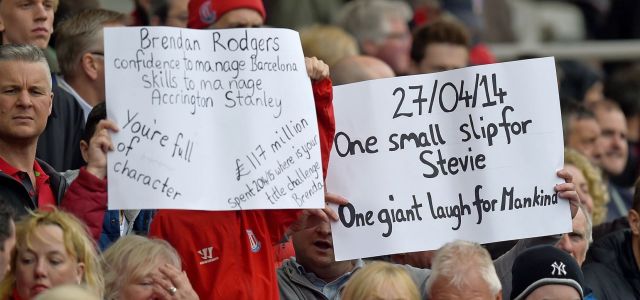 Brendan Rodgers
confidence to manage Barcelona
skills to manage
Accrington Stanley
You're full
of
character
£117 million
spent 2014/15 where is your
title challenge
Brendan
27/04/14
One small slip for
Stevie
One giant laugh for Mankind